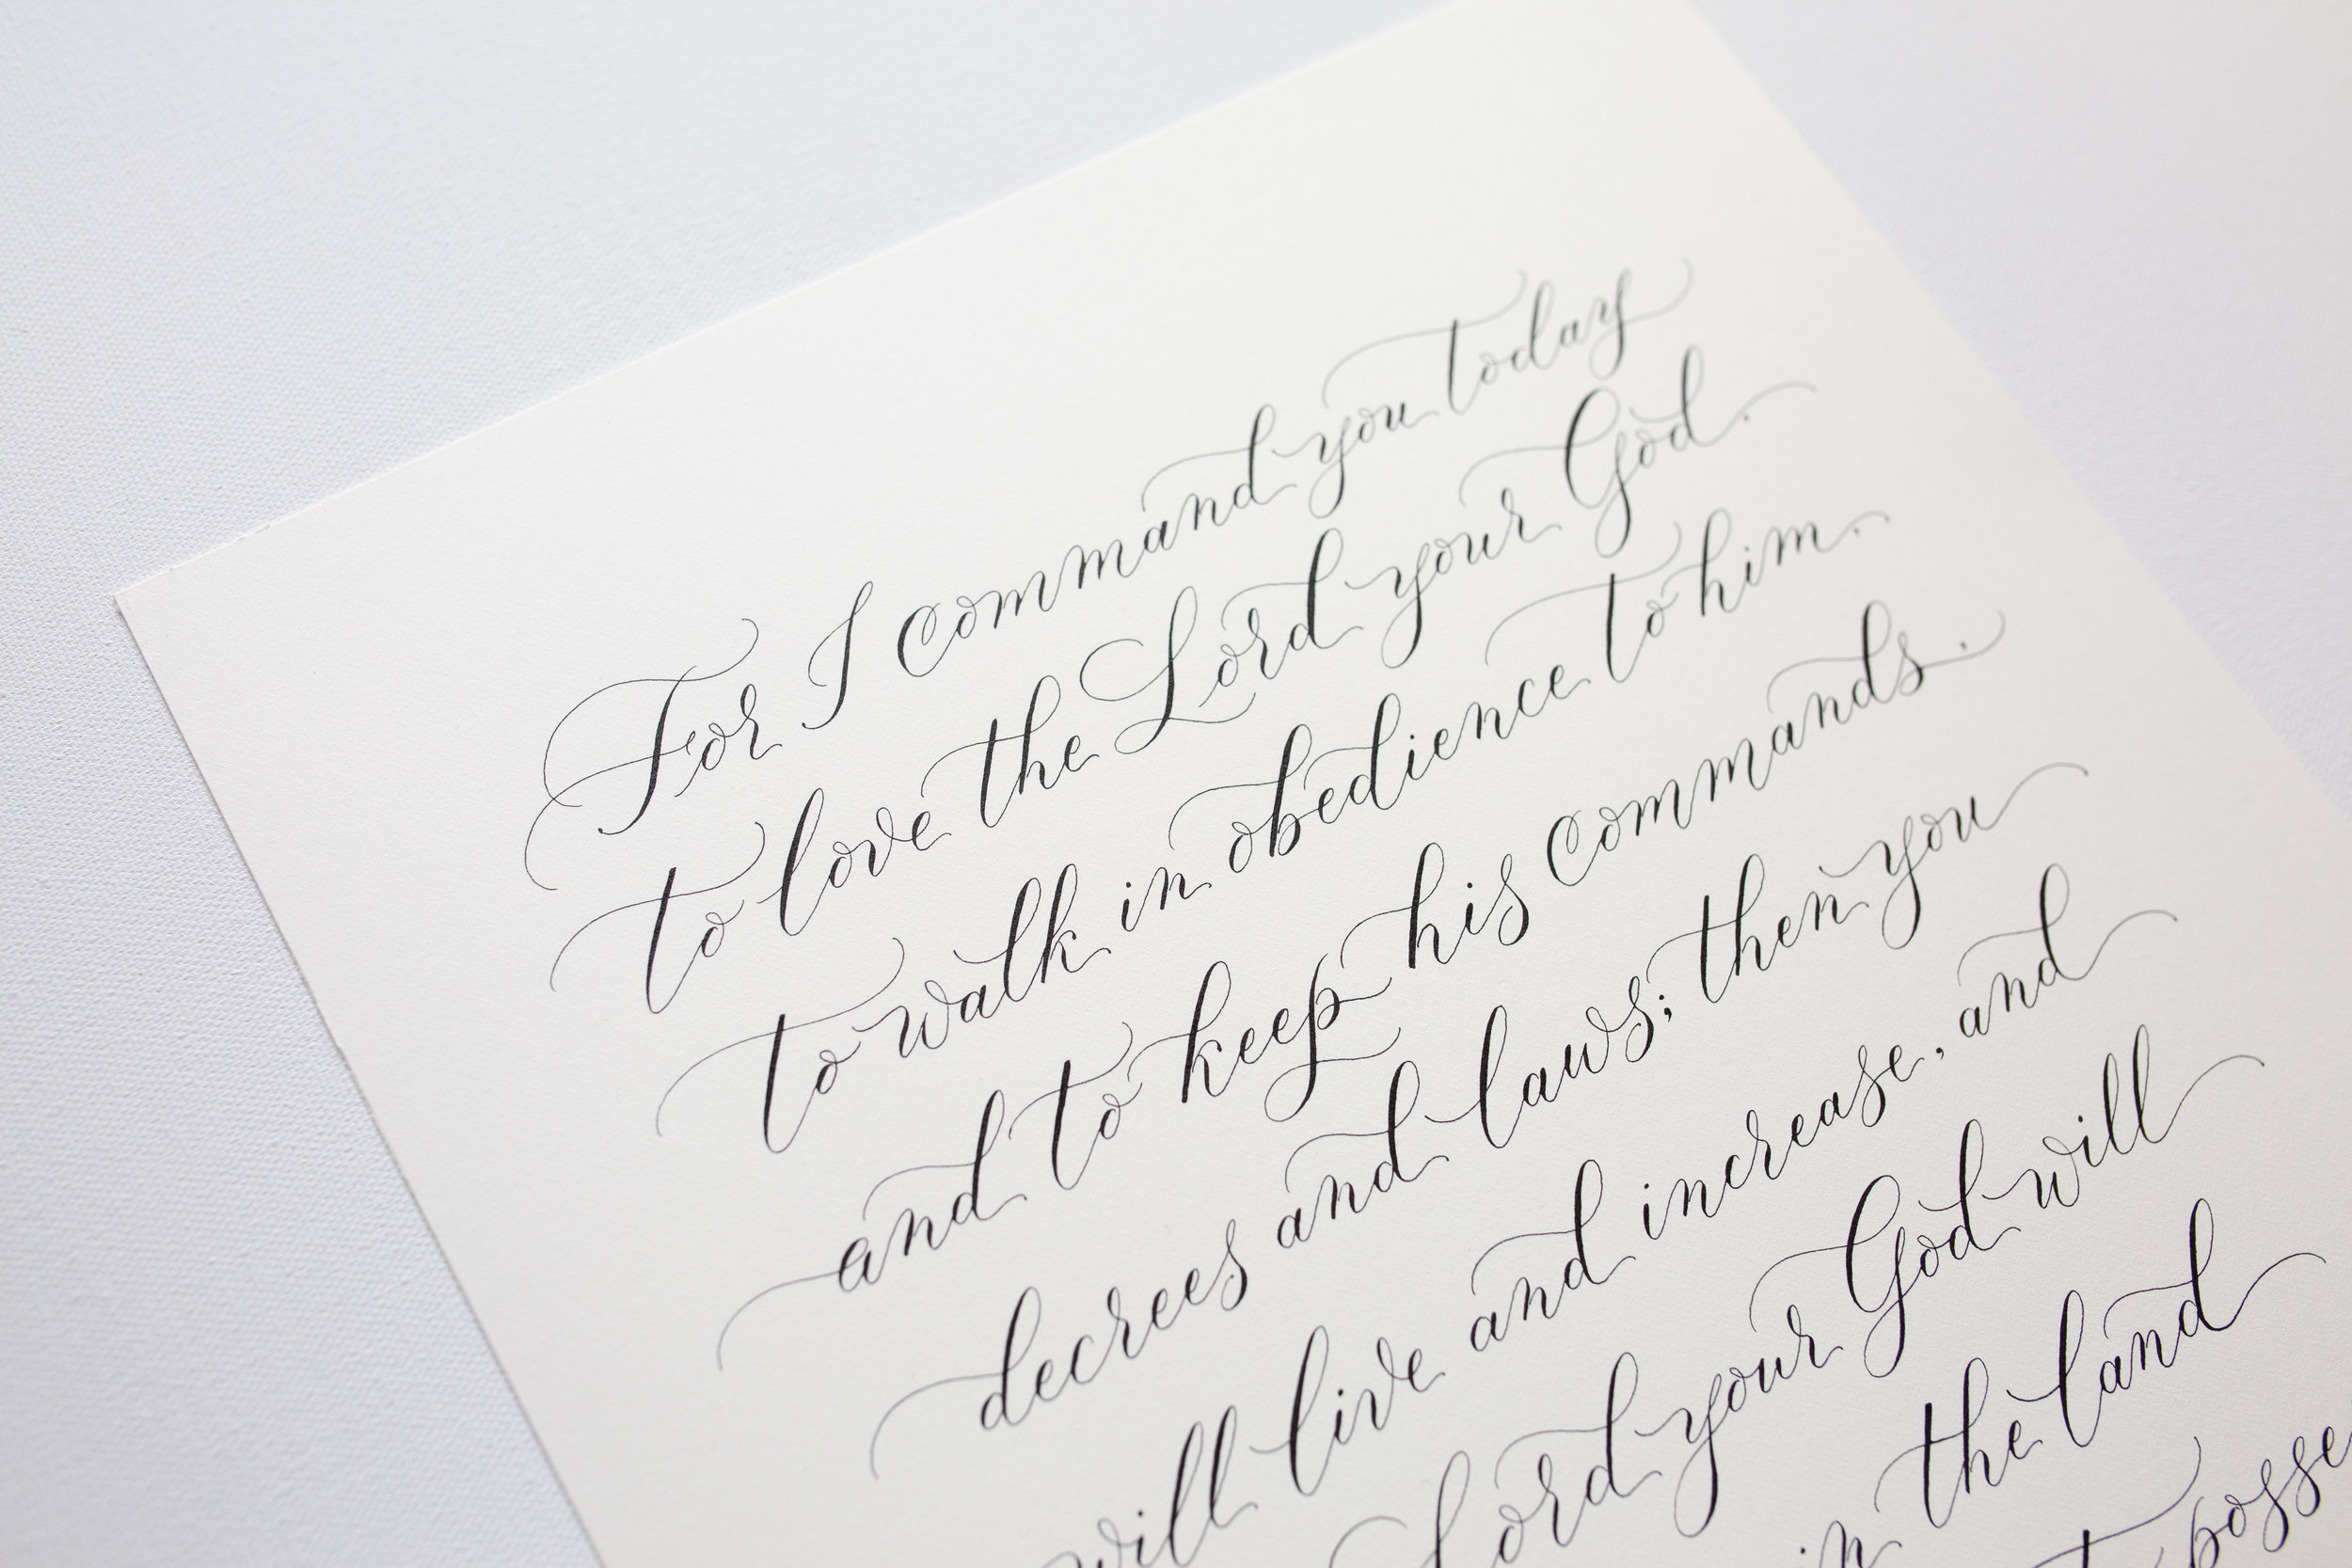 For I command you today
to love the Lord your God.
to walk in obedience to him.
and to keep his commands.
decrees and laws; then you
will live and increase, and
Lord your God will
in the land